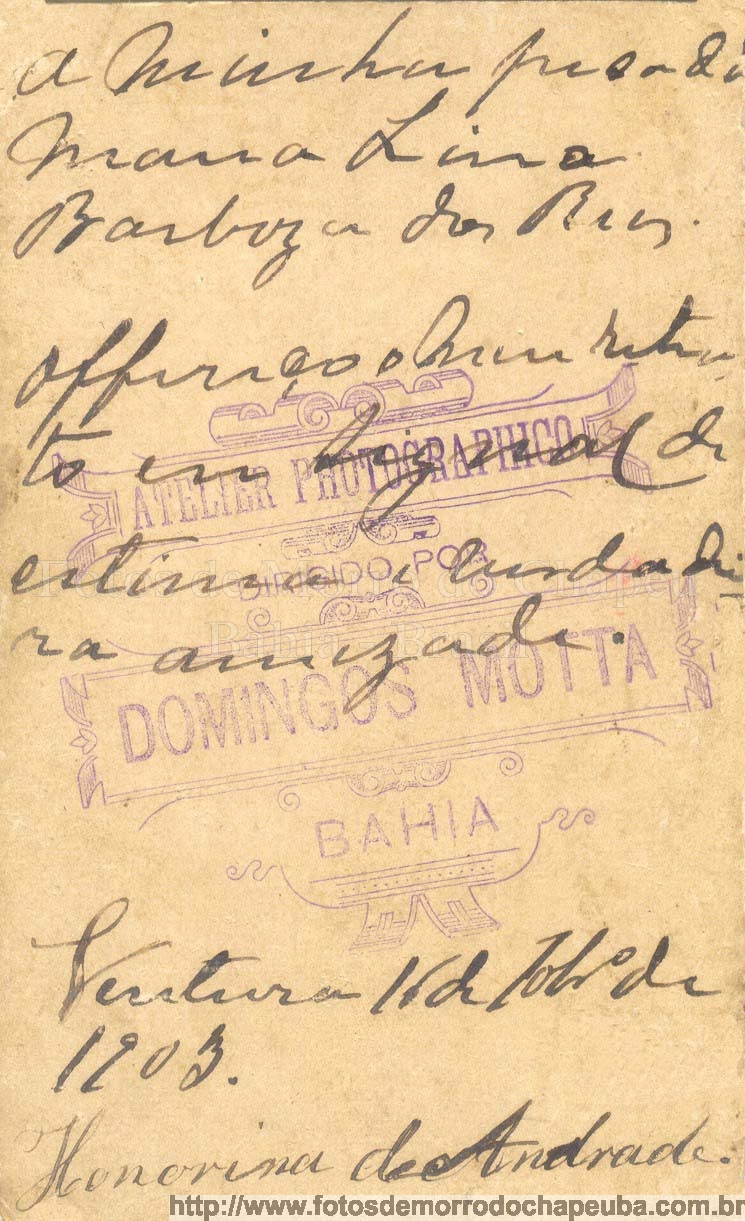 A Minha presada
Maria Lina
Barboza dos Reis.
offereço o Meu retra
to em Signal de
ATELIER PHOTOGRAPHICO
DIRIGIDO POR
estima e verdadei
ra amizade.
Fotos de Morro do Chapéu
Bahia - Brasil
DOMINGOS MOTTA
BAHIA
Ventura 16 de de
1903.
Honorina de Andrade.
http://www.fotosdemorrodochapeuba.com.br